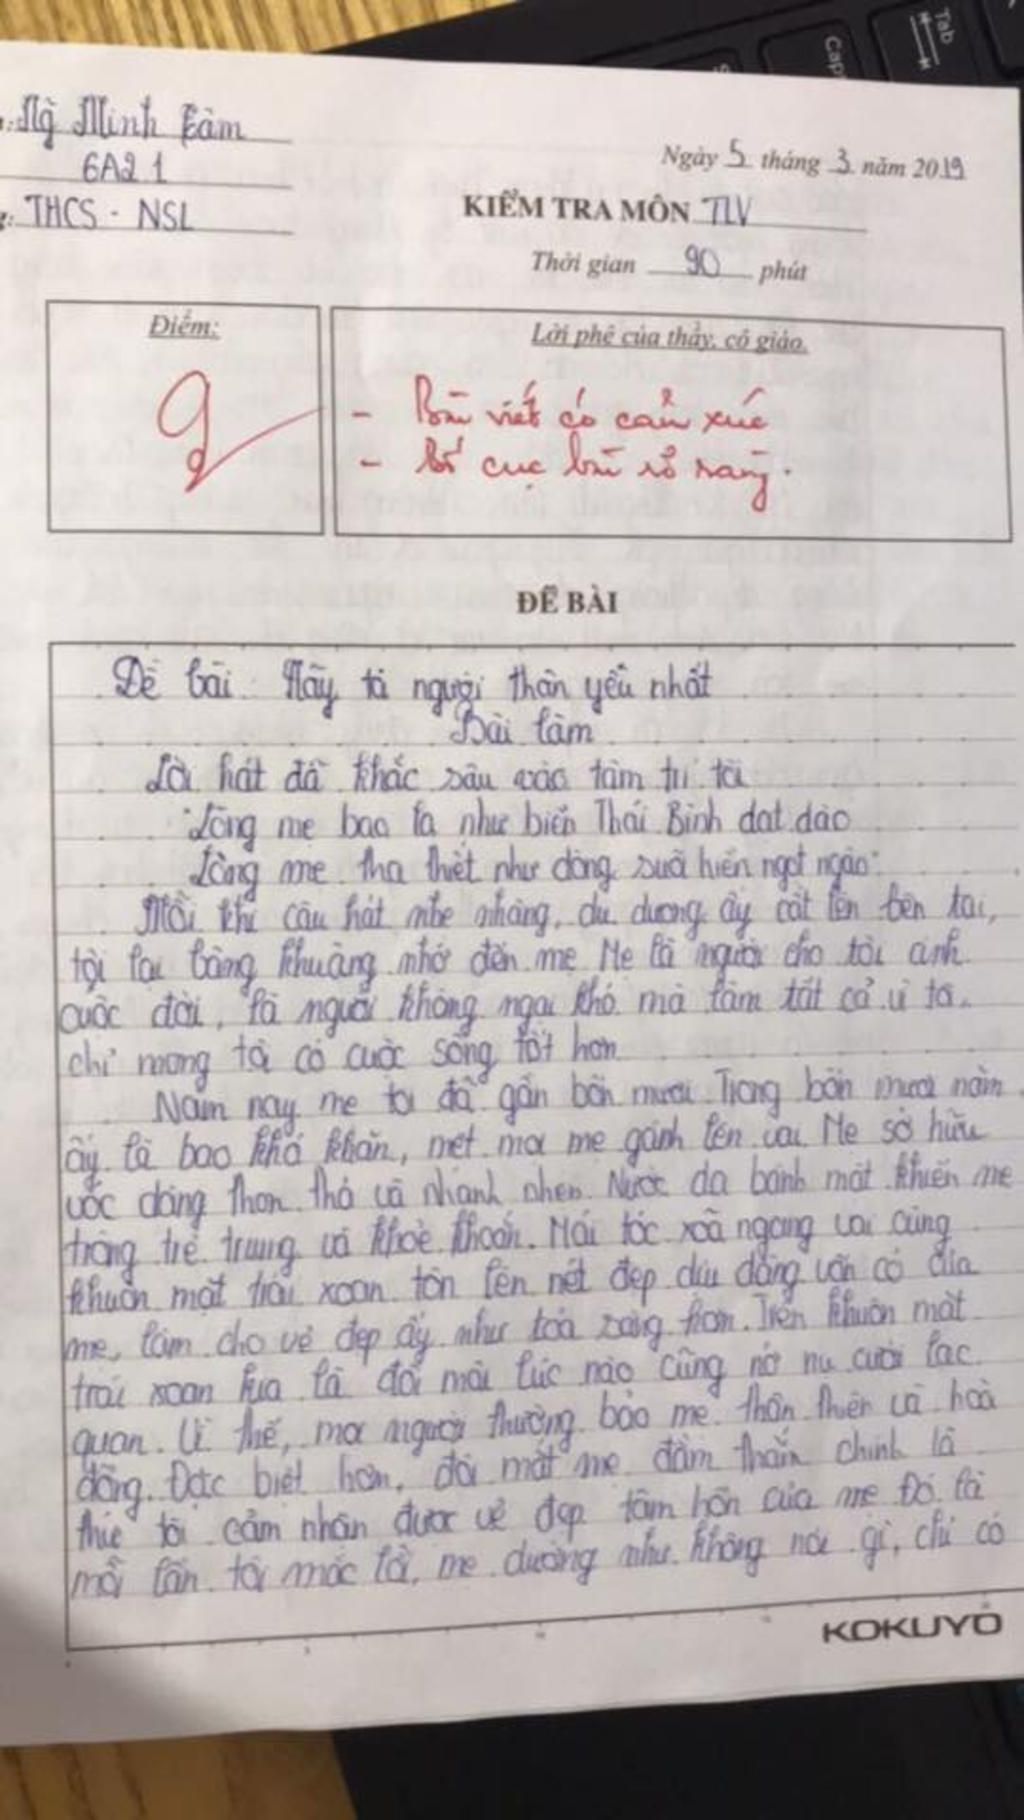 Minh
6A2 1
THCS - NSL
Ngày 5 tháng 3 năm 2019
KIỂM TRA MÔN TLV
Thời gian 90 phút
Điểm:
9
Lời phê của thầy, cô giáo.
- Bài viết có cảm xúc
- Bố cục bài rõ ràng.
ĐỀ BÀI
Đề bài: Hãy tả người thân yêu nhất
Bài làm
Lời hát đã khắc sâu vào tâm trí tôi
"Lòng mẹ bao la như biển Thái Bình dạt dào
Lòng mẹ tha thiết như dòng suối hiền ngọt ngào"
Mỗi khi câu hát nhẹ nhàng, du dương ấy cất lên bên tai,
tôi lại bâng khuâng nhớ đến mẹ. Mẹ là người cho tôi cả
cuộc đời, là người không ngại khó mà làm tất cả vì tôi,
chỉ mong tôi có cuộc sống tốt hơn
Năm nay mẹ tôi đã gần bốn mươi. Trong bốn mươi năm
ấy là bao khó khăn, mệt mỏi mẹ gánh lên vai. Mẹ sở hữu
vóc dáng thon thả và nhanh nhẹn. Nước da bánh mật khiến mẹ
trông trẻ trung và khoẻ khoắn. Mái tóc xoã ngang vai cùng
khuôn mặt trái xoan tôn lên nét đẹp dịu dàng vốn có của
mẹ, làm cho vẻ đẹp ấy như toả sáng hơn. Trên khuôn mặt
trái xoan kia là đôi môi lúc nào cũng nở nụ cười lạc
quan. Vì thế, mọi người thường bảo mẹ thân thiện và hoà
đồng. Đặc biệt hơn, đôi mắt mẹ đằm thắm chính là
thứ tôi cảm nhận được vẻ đẹp tâm hồn của mẹ. Đó là
mỗi lần tôi mắc lỗi, mẹ dường như không nói gì, chỉ có
KOKUYO
Tab
Cap